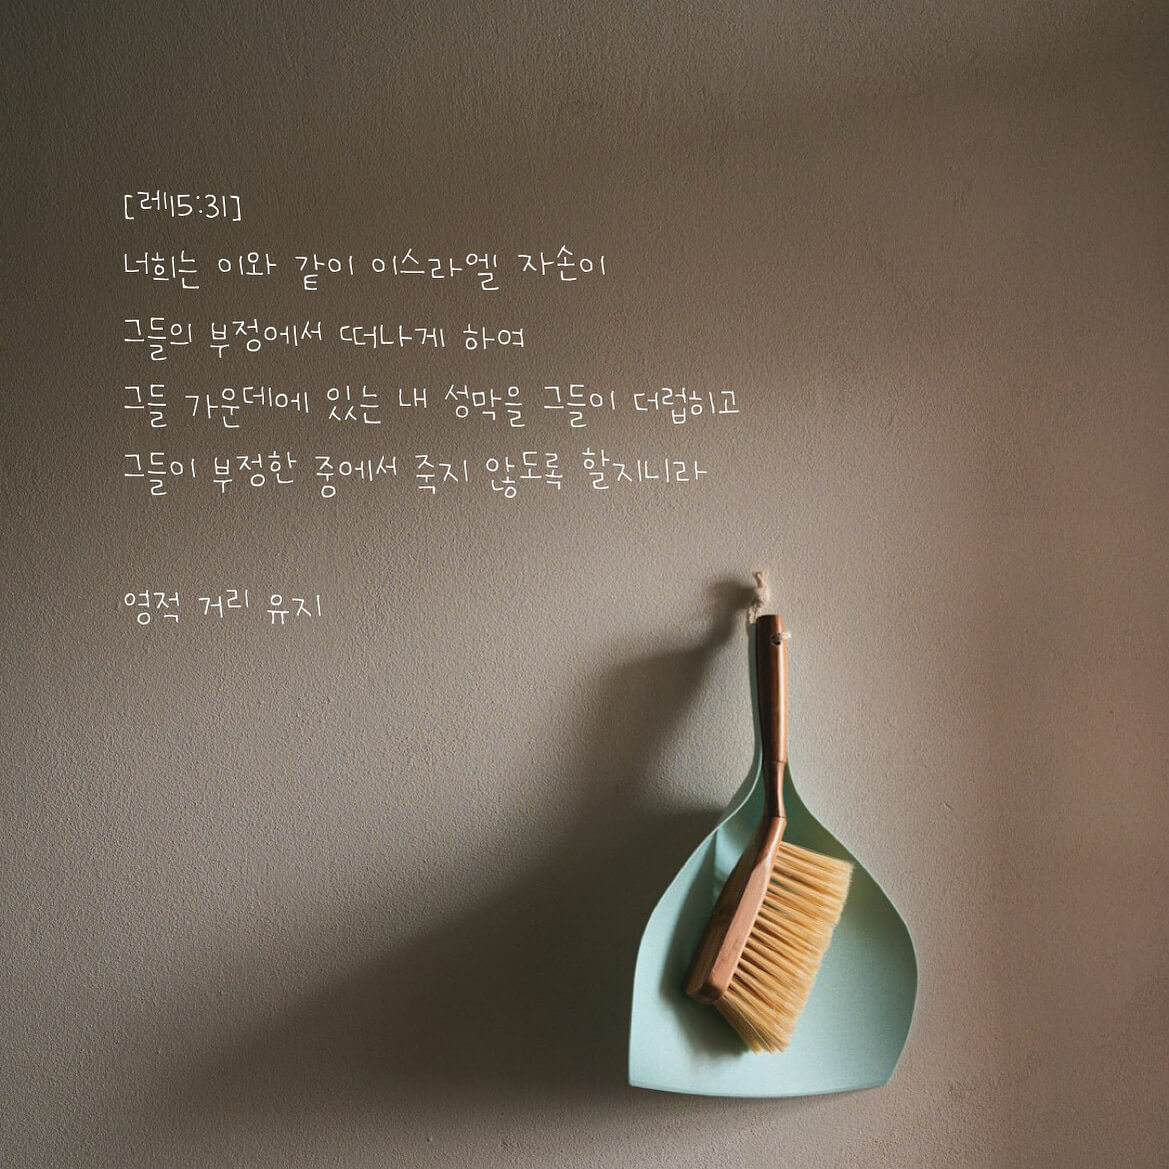 [레15:31]
너희는 이와 같이 이스라엘 자손이
그들의 부정에서 떠나게 하여
그들 가운데에 있는 내 성막을 그들이 더럽히고
그들이 부정한 중에서 죽지 않도록 할지니라
영적 거리 유지